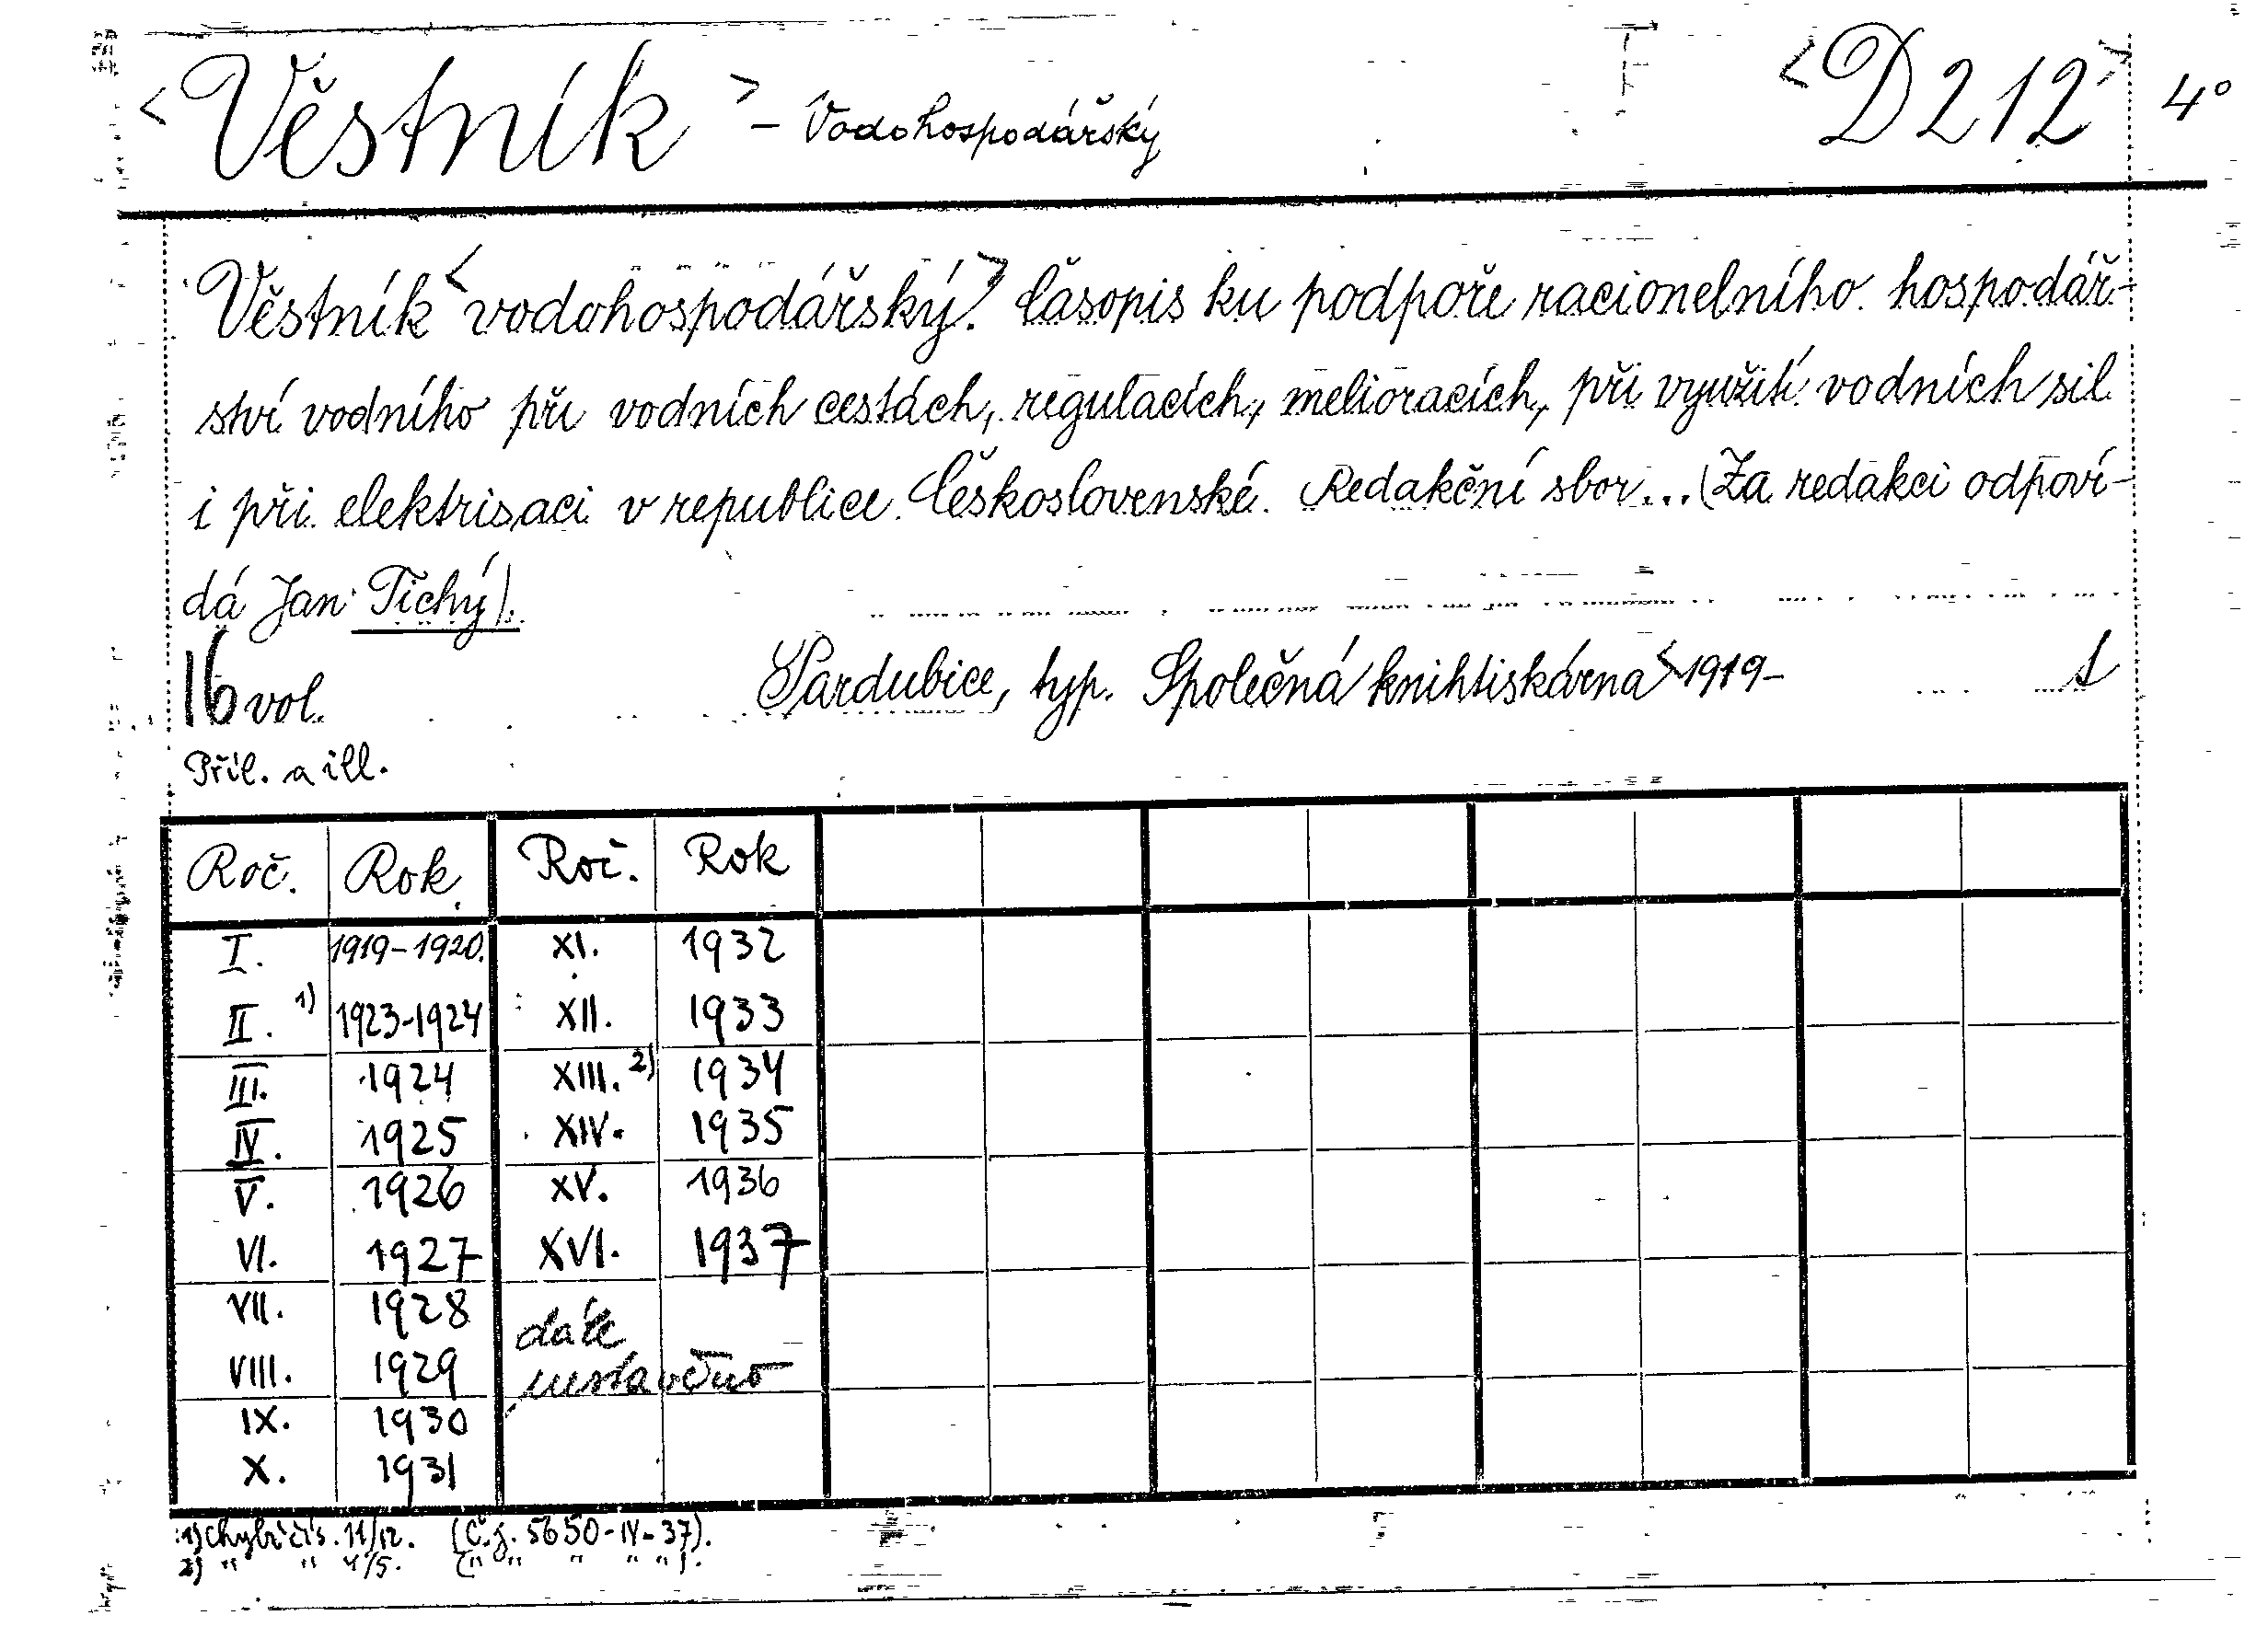 <Věstník> – Vodohospodářský <D 212> 4°
Věstník <vodohospodářský.> Časopis ku podpoře racionelního hospodář-
ství vodního při vodních cestách, regulacích, melioracích, při využití vodních sil
i při elektrisaci v republice Československé. Redakční sbor... (Za redakci odpoví-
dá Jan Tichý).
16 vol. Pardubice, typ. Společná knihtiskárna <1919–
Příl. a ill.
Roč. Rok Roč. Rok
I. 1919–1920. XI. 1932
II. 1) 1923-1924 XII. 1933
III. 1924 XIII. 2) 1934
IV. 1925 XIV. 1935
V. 1926 XV. 1936
VI. 1927 XVI. 1937
VII. 1928 dále
VIII. 1929
IX. 1930
X. 1931
1) Chybí čís. 11/12. (Č.j. 5650-IV-37).
2) " " 4/5. (" " " " ").